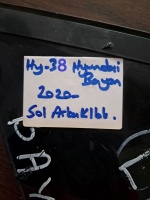 Hy-38 Hyundai
Bayon
2020-
Sol Arka Klbb.
PAV